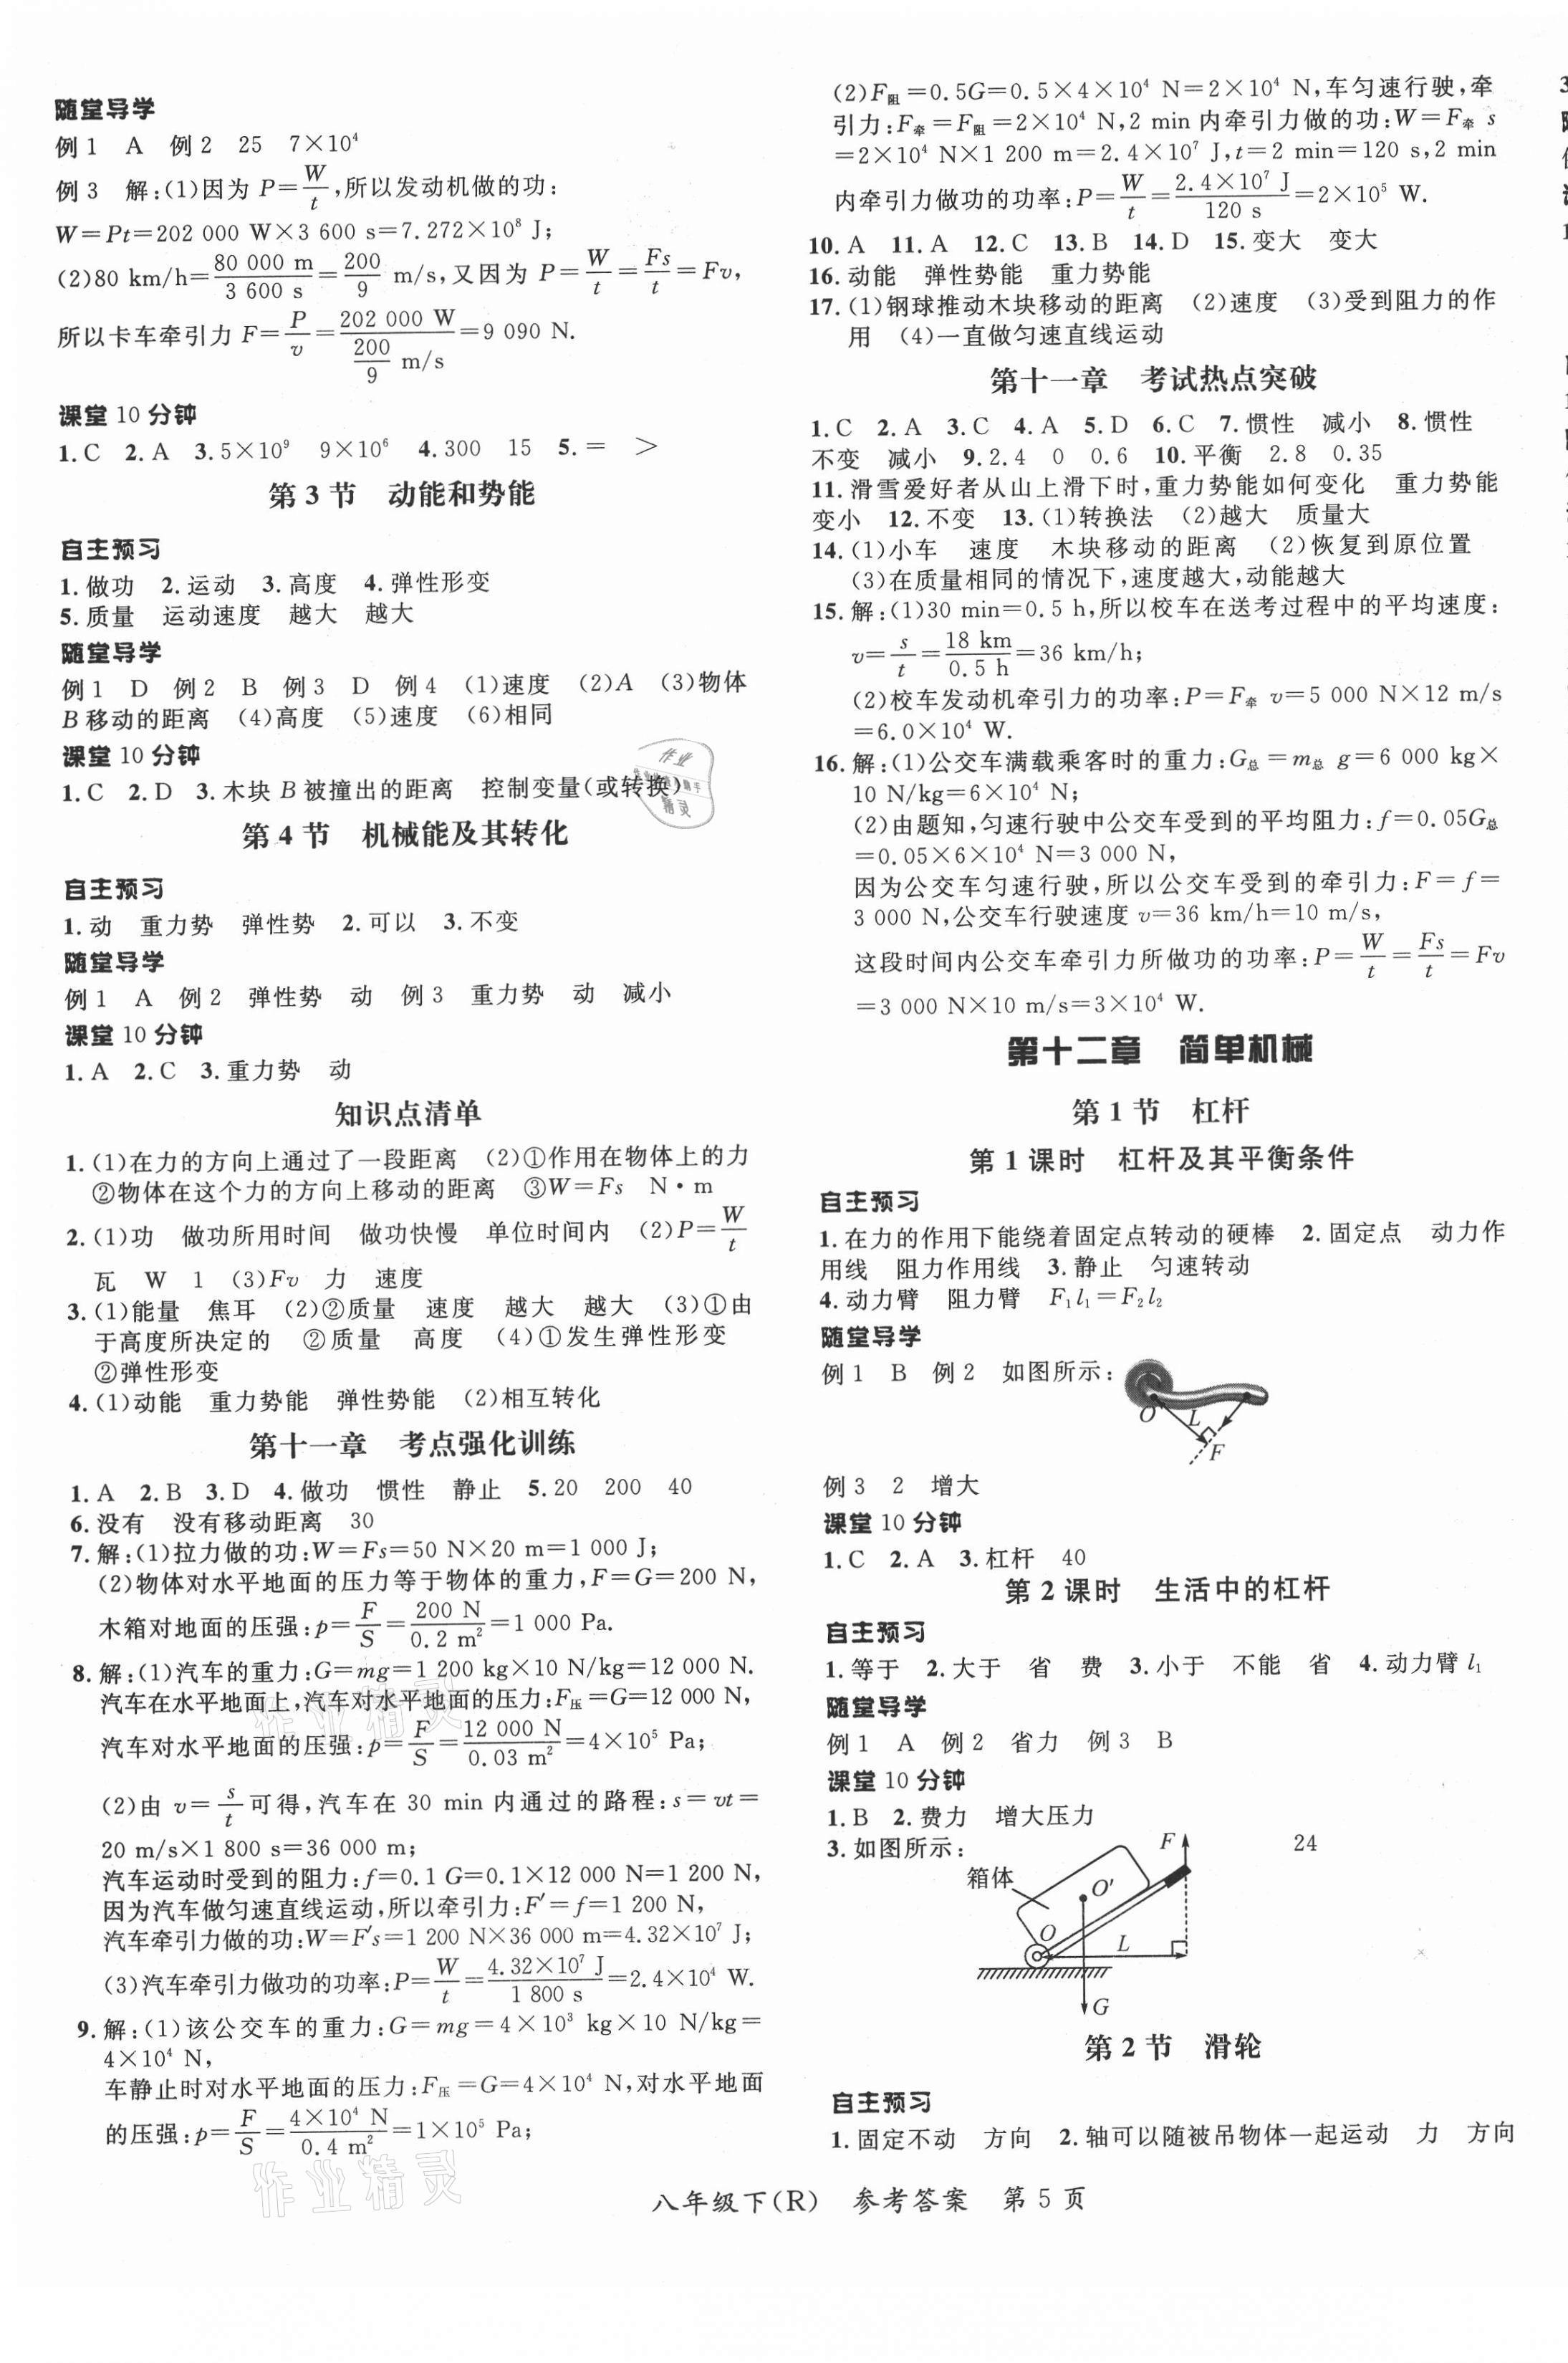 随堂导学
例1 A 例2 25 7×10⁴
例3 解:(1)因为 P=W/t,所以发动机做的功:
W=Pt=202 000 W×3 600 s=7.272×10⁸ J;
(2)80 km/h=80 000 m/3 600 s=200/9 m/s,又因为 P=W/t=Fs/t=Fv,
所以卡车牵引力 F=P/v=202 000 W/(200/9 m/s)=9 090 N.
课堂10分钟
1.C 2.A 3.5×10⁹ 9×10⁶ 4.300 15 5.= >
第3节 动能和势能
自主预习
1.做功 2.运动 3.高度 4.弹性形变
5.质量 运动速度 越大 越大
随堂导学
例1 D 例2 B 例3 D 例4 (1)速度 (2)A (3)物体
B移动的距离 (4)高度 (5)速度 (6)相同
课堂10分钟
1.C 2.D 3.木块B被撞出的距离 控制变量(或转换)
第4节 机械能及其转化
自主预习
1.动 重力势 弹性势 2.可以 3.不变
随堂导学
例1 A 例2 弹性势 动 例3 重力势 动 减小
课堂10分钟
1.A 2.C 3.重力势 动
知识点清单
1.(1)在力的方向上通过了一段距离 (2)①作用在物体上的力
②物体在这个力的方向上移动的距离 ③W=Fs N·m
2.(1)功 做功所用时间 做功快慢 单位时间内 (2)P=W/t
瓦 W 1 (3)Fv 力 速度
3.(1)能量 焦耳 (2)②质量 速度 越大 越大 (3)①由
于高度所决定的 ②质量 高度 (4)①发生弹性形变
②弹性形变
4.(1)动能 重力势能 弹性势能 (2)相互转化
第十一章 考点强化训练
1.A 2.B 3.D 4.做功 惯性 静止 5.20 200 40
6.没有 没有移动距离 30
7.解:(1)拉力做的功:W=Fs=50 N×20 m=1 000 J;
(2)物体对水平地面的压力等于物体的重力,F=G=200 N,
木箱对地面的压强:p=F/S=200 N/0.2 m²=1 000 Pa.
8.解:(1)汽车的重力:G=mg=1 200 kg×10 N/kg=12 000 N.
汽车在水平地面上,汽车对水平地面的压力:F压=G=12 000 N,
汽车对水平地面的压强:p=F/S=12 000 N/0.03 m²=4×10⁵ Pa;
(2)由 v=s/t可得,汽车在 30 min 内通过的路程:s=vt=
20 m/s×1 800 s=36 000 m;
汽车运动时受到的阻力:f=0.1 G=0.1×12 000 N=1 200 N,
因为汽车做匀速直线运动,所以牵引力:F′=f=1 200 N,
汽车牵引力做的功:W=F′s=1 200 N×36 000 m=4.32×10⁷ J;
(3)汽车牵引力做功的功率:P=W/t=4.32×10⁷ J/1 800 s=2.4×10⁴ W.
9.解:(1)该公交车的重力:G=mg=4×10³ kg×10 N/kg=
4×10⁴ N,
车静止时对水平地面的压力:F压=G=4×10⁴ N,对水平地面
的压强:p=F/S=4×10⁴ N/0.4 m²=1×10⁵ Pa;
(2)F阻=0.5G=0.5×4×10⁴ N=2×10⁴ N,车匀速行驶,牵
引力:F牵=F阻=2×10⁴ N,2 min内牵引力做的功:W=F牵 s
=2×10⁴ N×1 200 m=2.4×10⁷ J,t=2 min=120 s,2 min
内牵引力做功的功率:P=W/t=2.4×10⁷ J/120 s=2×10⁵ W.
10.A 11.A 12.C 13.B 14.D 15.变大 变大
16.动能 弹性势能 重力势能
17.(1)钢球推动木块移动的距离 (2)速度 (3)受到阻力的作
用 (4)一直做匀速直线运动
第十一章 考试热点突破
1.C 2.A 3.C 4.A 5.D 6.C 7.惯性 减小 8.惯性
不变 减小 9.2.4 0 0.6 10.平衡 2.8 0.35
11.滑雪爱好者从山上滑下时,重力势能如何变化 重力势能
变小 12.不变 13.(1)转换法 (2)越大 质量大
14.(1)小车 速度 木块移动的距离 (2)恢复到原位置
(3)在质量相同的情况下,速度越大,动能越大
15.解:(1)30 min=0.5 h,所以校车在送考过程中的平均速度:
v=s/t=18 km/0.5 h=36 km/h;
(2)校车发动机牵引力的功率:P=F牵 v=5 000 N×12 m/s
=6.0×10⁴ W.
16.解:(1)公交车满载乘客时的重力:G总=m总 g=6 000 kg×
10 N/kg=6×10⁴ N;
(2)由题知,匀速行驶中公交车受到的平均阻力:f=0.05G总
=0.05×6×10⁴ N=3 000 N,
因为公交车匀速行驶,所以公交车受到的牵引力:F=f=
3 000 N,公交车行驶速度 v=36 km/h=10 m/s,
这段时间内公交车牵引力所做功的功率:P=W/t=Fs/t=Fv
=3 000 N×10 m/s=3×10⁴ W.
第十二章 简单机械
第1节 杠杆
第1课时 杠杆及其平衡条件
自主预习
1.在力的作用下能绕着固定点转动的硬棒 2.固定点 动力作
用线 阻力作用线 3.静止 匀速转动
4.动力臂 阻力臂 F₁l₁=F₂l₂
随堂导学
例1 B 例2 如图所示:
O L F
例3 2 增大
课堂10分钟
1.C 2.A 3.杠杆 40
第2课时 生活中的杠杆
自主预习
1.等于 2.大于 省 费 3.小于 不能 省 4.动力臂l₁
随堂导学
例1 A 例2 省力 例3 B
课堂10分钟
1.B 2.费力 增大压力
3.如图所示: 24
箱体 O′ F O L G
第2节 滑轮
自主预习
1.固定不动 方向 2.轴可以随被吊物体一起运动 力 方向
八年级下(R) 参考答案 第5页
作业精灵
作业精灵